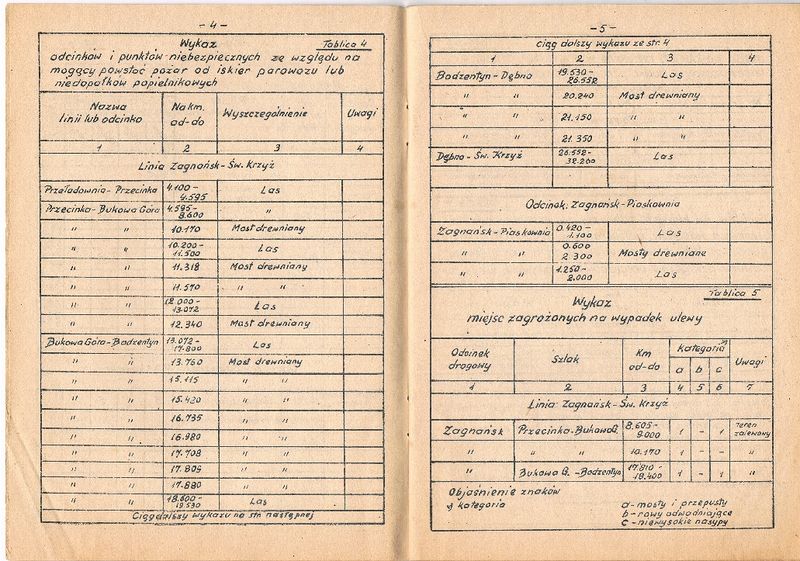 - 4 -
Wykaz Tablica 4
odcinków i punktów niebezpiecznych ze względu na
mogący powstać pożar od iskier parowozu lub
niedopałków popielnikowych
Nazwa linii lub odcinka Na km. od-do Wyszczególnienie Uwagi
1 2 3 4
Linia Zagnańsk - Św. Krzyż
Przeładownia - Przecinka 4.100 - 4.595 Las
Przecinka - Bukowa Góra 4.595 - 8.600 "
" " 10.170 Most drewniany
" " 10.200 - 11.500 Las
" " 11.318 Most drewniany
" " 11.570 " "
" " 12.000 - 13.072 Las
" " 12.340 Most drewniany
Bukowa Góra - Bodzentyn 13.072 - 17.800 Las
" " 13.760 Most drewniany
" " 15.115 " "
" " 15.420 " "
" " 16.735 " "
" " 16.980 " "
" " 17.708 " "
" " 17.809 " "
" " 17.880 " "
" " 18.600 - 19.530 Las
Ciąg dalszy wykazu na str. następnej
- 5 -
ciąg dalszy wykazu ze str. 4
1 2 3 4
Bodzentyn - Dębno 19.530 - 26.552 Las
" " 20.240 Most drewniany
" " 21.150 " "
" " 21.350 " "
Dębno - Św. Krzyż 26.552 - 32.200 Las
Odcinek: Zagnańsk - Piaskownia
Zagnańsk - Piaskownia 0.420 - 1.100 Las
" " 0.600 2.300 Mosty drewniane
" " 1.250 - 2.000 Las
Tablica 5
Wykaz
miejsc zagrożonych na wypadek ulewy
Odcinek drogowy Szlak Km od-do kategoria x) Uwagi
a b c
1 2 3 4 5 6 7
Linia: Zagnańsk - Św. Krzyż
Zagnańsk Przecinka - Bukowa G. 8.605 - 9.000 1 - 1 teren zalewowy
" " 10.170 1 - - "
" Bukowa G. - Bodzentyn 17.810 - 18.400 1 - 1 "
Objaśnienie znaków
x) kategoria a - mosty i przepusty
b - rowy odwadniające
c - niewysokie nasypy